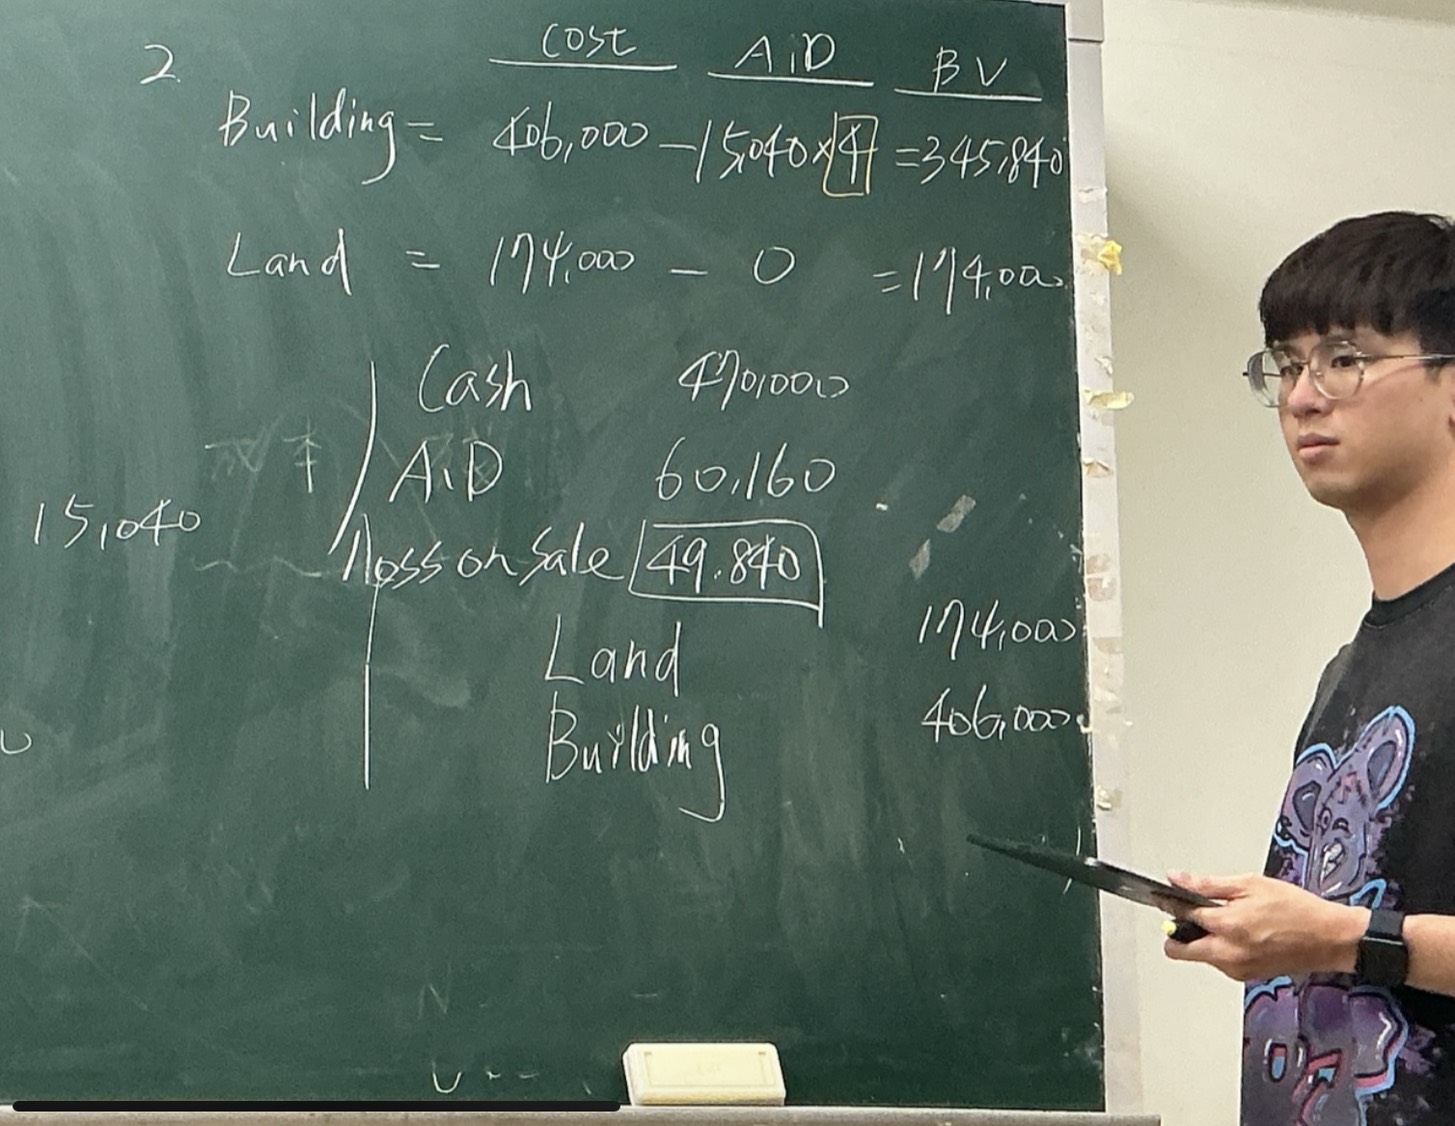 2 Cost AiD BV
Building = 406,000 - 15,040 × 4 = 345,840
Land = 174,000 - 0 = 174,000
Cash 470,000
AiD 60,160
15,040
loss on sale 49.840
Land 174,000
Building 406,000